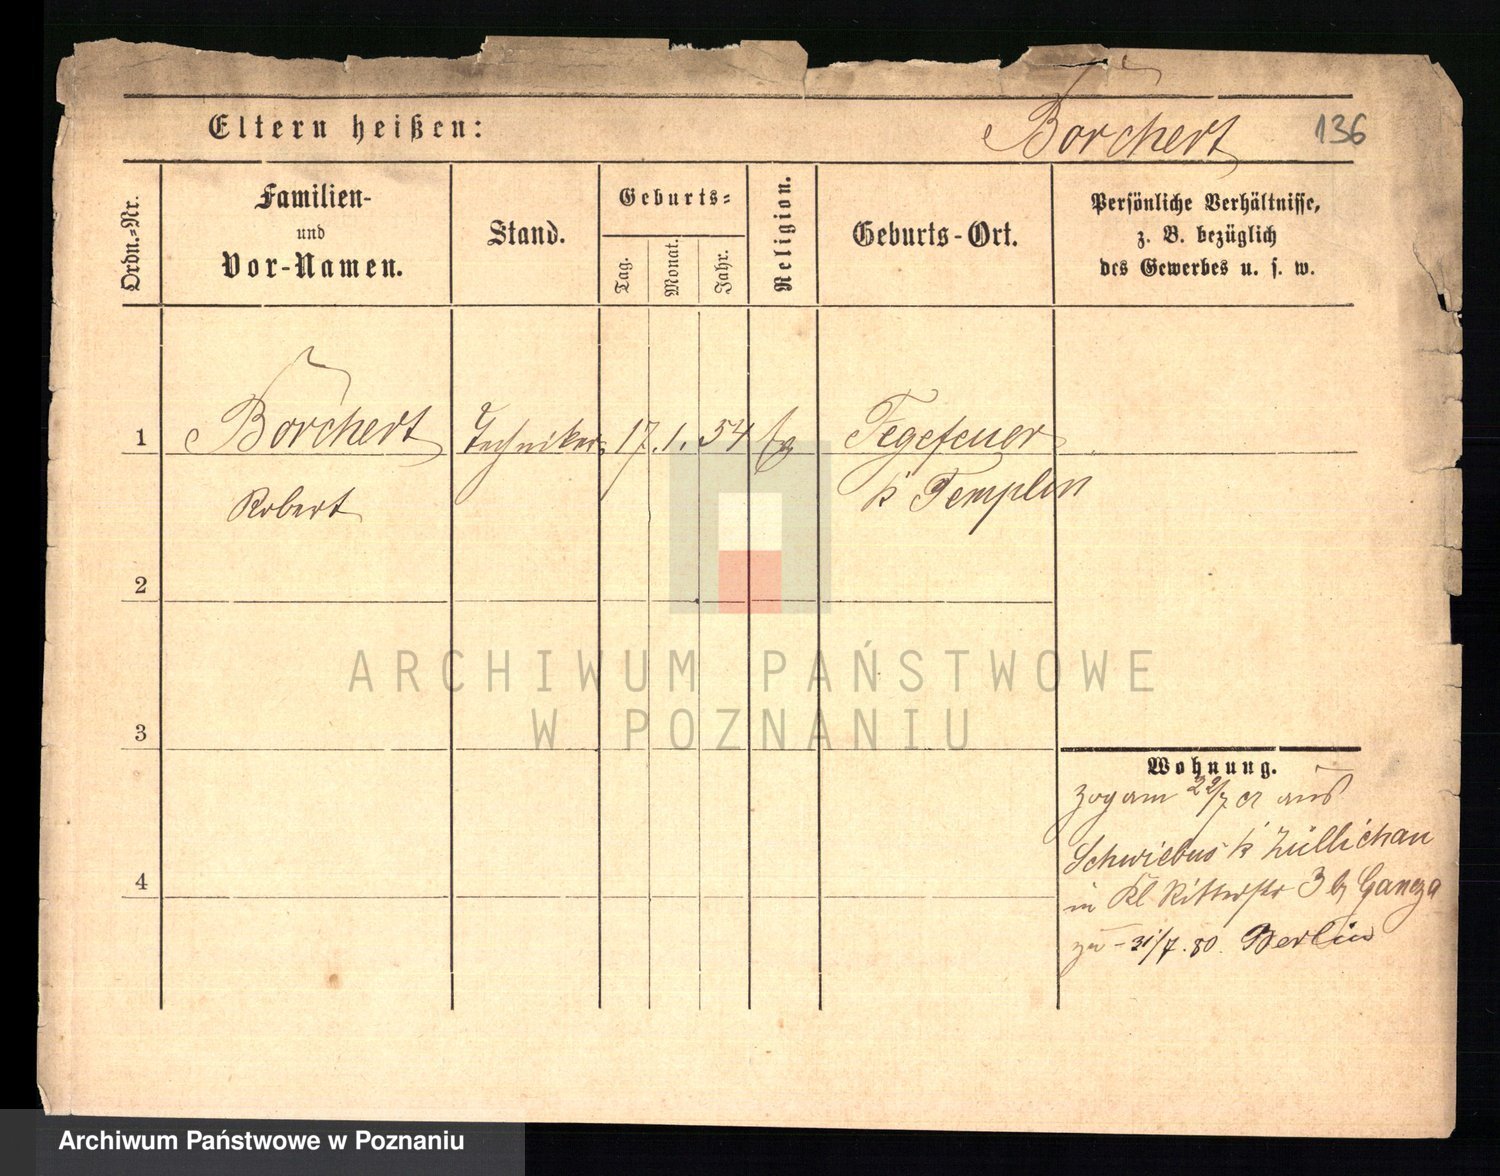 Eltern heißen:
Borchert
136
Ordn.-Nr.
Familien-
und
Vor-Namen.
Stand.
Geburts-
Tag.
Monat.
Jahr.
Religion.
Geburts-Ort.
Persönliche Verhältnisse,
z. B. bezüglich
des Gewerbes u. s. w.
1 Borchert Techniker 17. 1. 54 Tegefeuer
Robert Templin
2
3
4
Wohnung.
zog am 22/7 cr aus
Schwiebus Züllichau
in Kl Ritterstr 3 b Gancza
zu - 31/7. 80. Berlin
ARCHIWUM PAŃSTWOWE
W POZNANIU
Archiwum Państwowe w Poznaniu